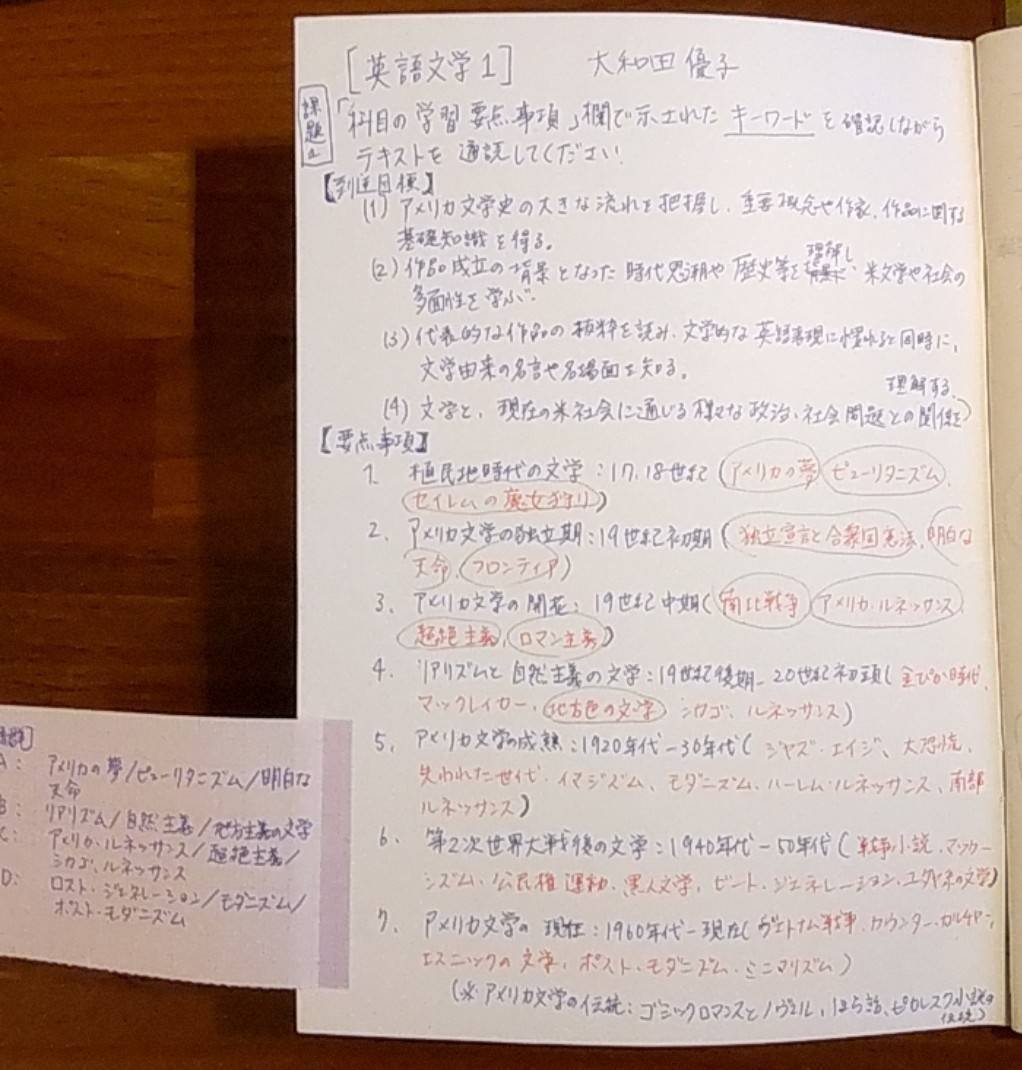 [英語文学1] 大和田 優子
課題a
「科目の学習要点事項」欄で示された キーワード を確認しながら
テキストを 通読してください
【到達目標】
(1) アメリカ文学史の大きな流れを把握し、重要概念や作家、作品に関する
基礎知識を得る。
(2) 作品成立の背景となった時代思潮や歴史等を理解し 米文学や社会の
多面性を学ぶ。
(3) 代表的な作品の抜粋を読み、文学的な英語表現に慣れると同時に、
文学由来の名言や名場面を知る。
(4) 文学と、現在の米社会に通じる様々な政治、社会問題との関係を
理解する。
【要点事項】
1. 植民地時代の文学：17、18世紀（アメリカの夢 ピューリタニズム、
セイレムの魔女狩り）
2. アメリカ文学の独立期：19世紀初期（独立宣言と合衆国憲法、明白な
天命、フロンティア）
3. アメリカ文学の開花：19世紀中期（南北戦争 アメリカ・ルネッサンス、
超絶主義、ロマン主義）
4. リアリズムと自然主義の文学：19世紀後期-20世紀初頭（金ぴか時代、
マックレイカー、地方色の文学 シカゴ、ルネッサンス）
5. アメリカ文学の成熟：1920年代-30年代（ジャズ・エイジ、大恐慌、
失われた世代、イマジズム、モダニズム、ハーレム・ルネッサンス、南部
ルネッサンス）
6. 第2次世界大戦後の文学：1940年代-50年代（戦争小説、マッカー
シズム、公民権運動、黒人文学、ビート・ジェネレーション、ユダヤ系の文学）
7. アメリカ文学の現在：1960年代-現在（ヴェトナム戦争、カウンター・カルチャー、
エスニックの文学、ポスト・モダニズム、ミニマリズム）
（※アメリカ文学の伝統：ゴシックロマンスとノヴェル、ほら話、ピカレスク小説の
伝統）
A： アメリカの夢/ピューリタニズム/明白な
天命
B： リアリズム/自然主義/地方主義の文学
C： アメリカ・ルネッサンス/超絶主義/
シカゴ、ルネッサンス
D： ロスト・ジェネレーション/モダニズム/
ポスト・モダニズム